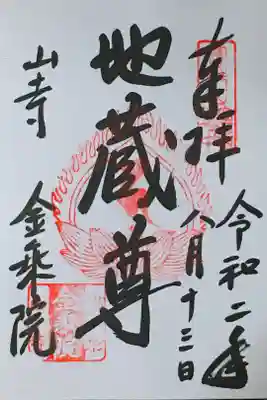 奉拝
令和二年
八月十三日
地蔵尊
山寺
金乗院